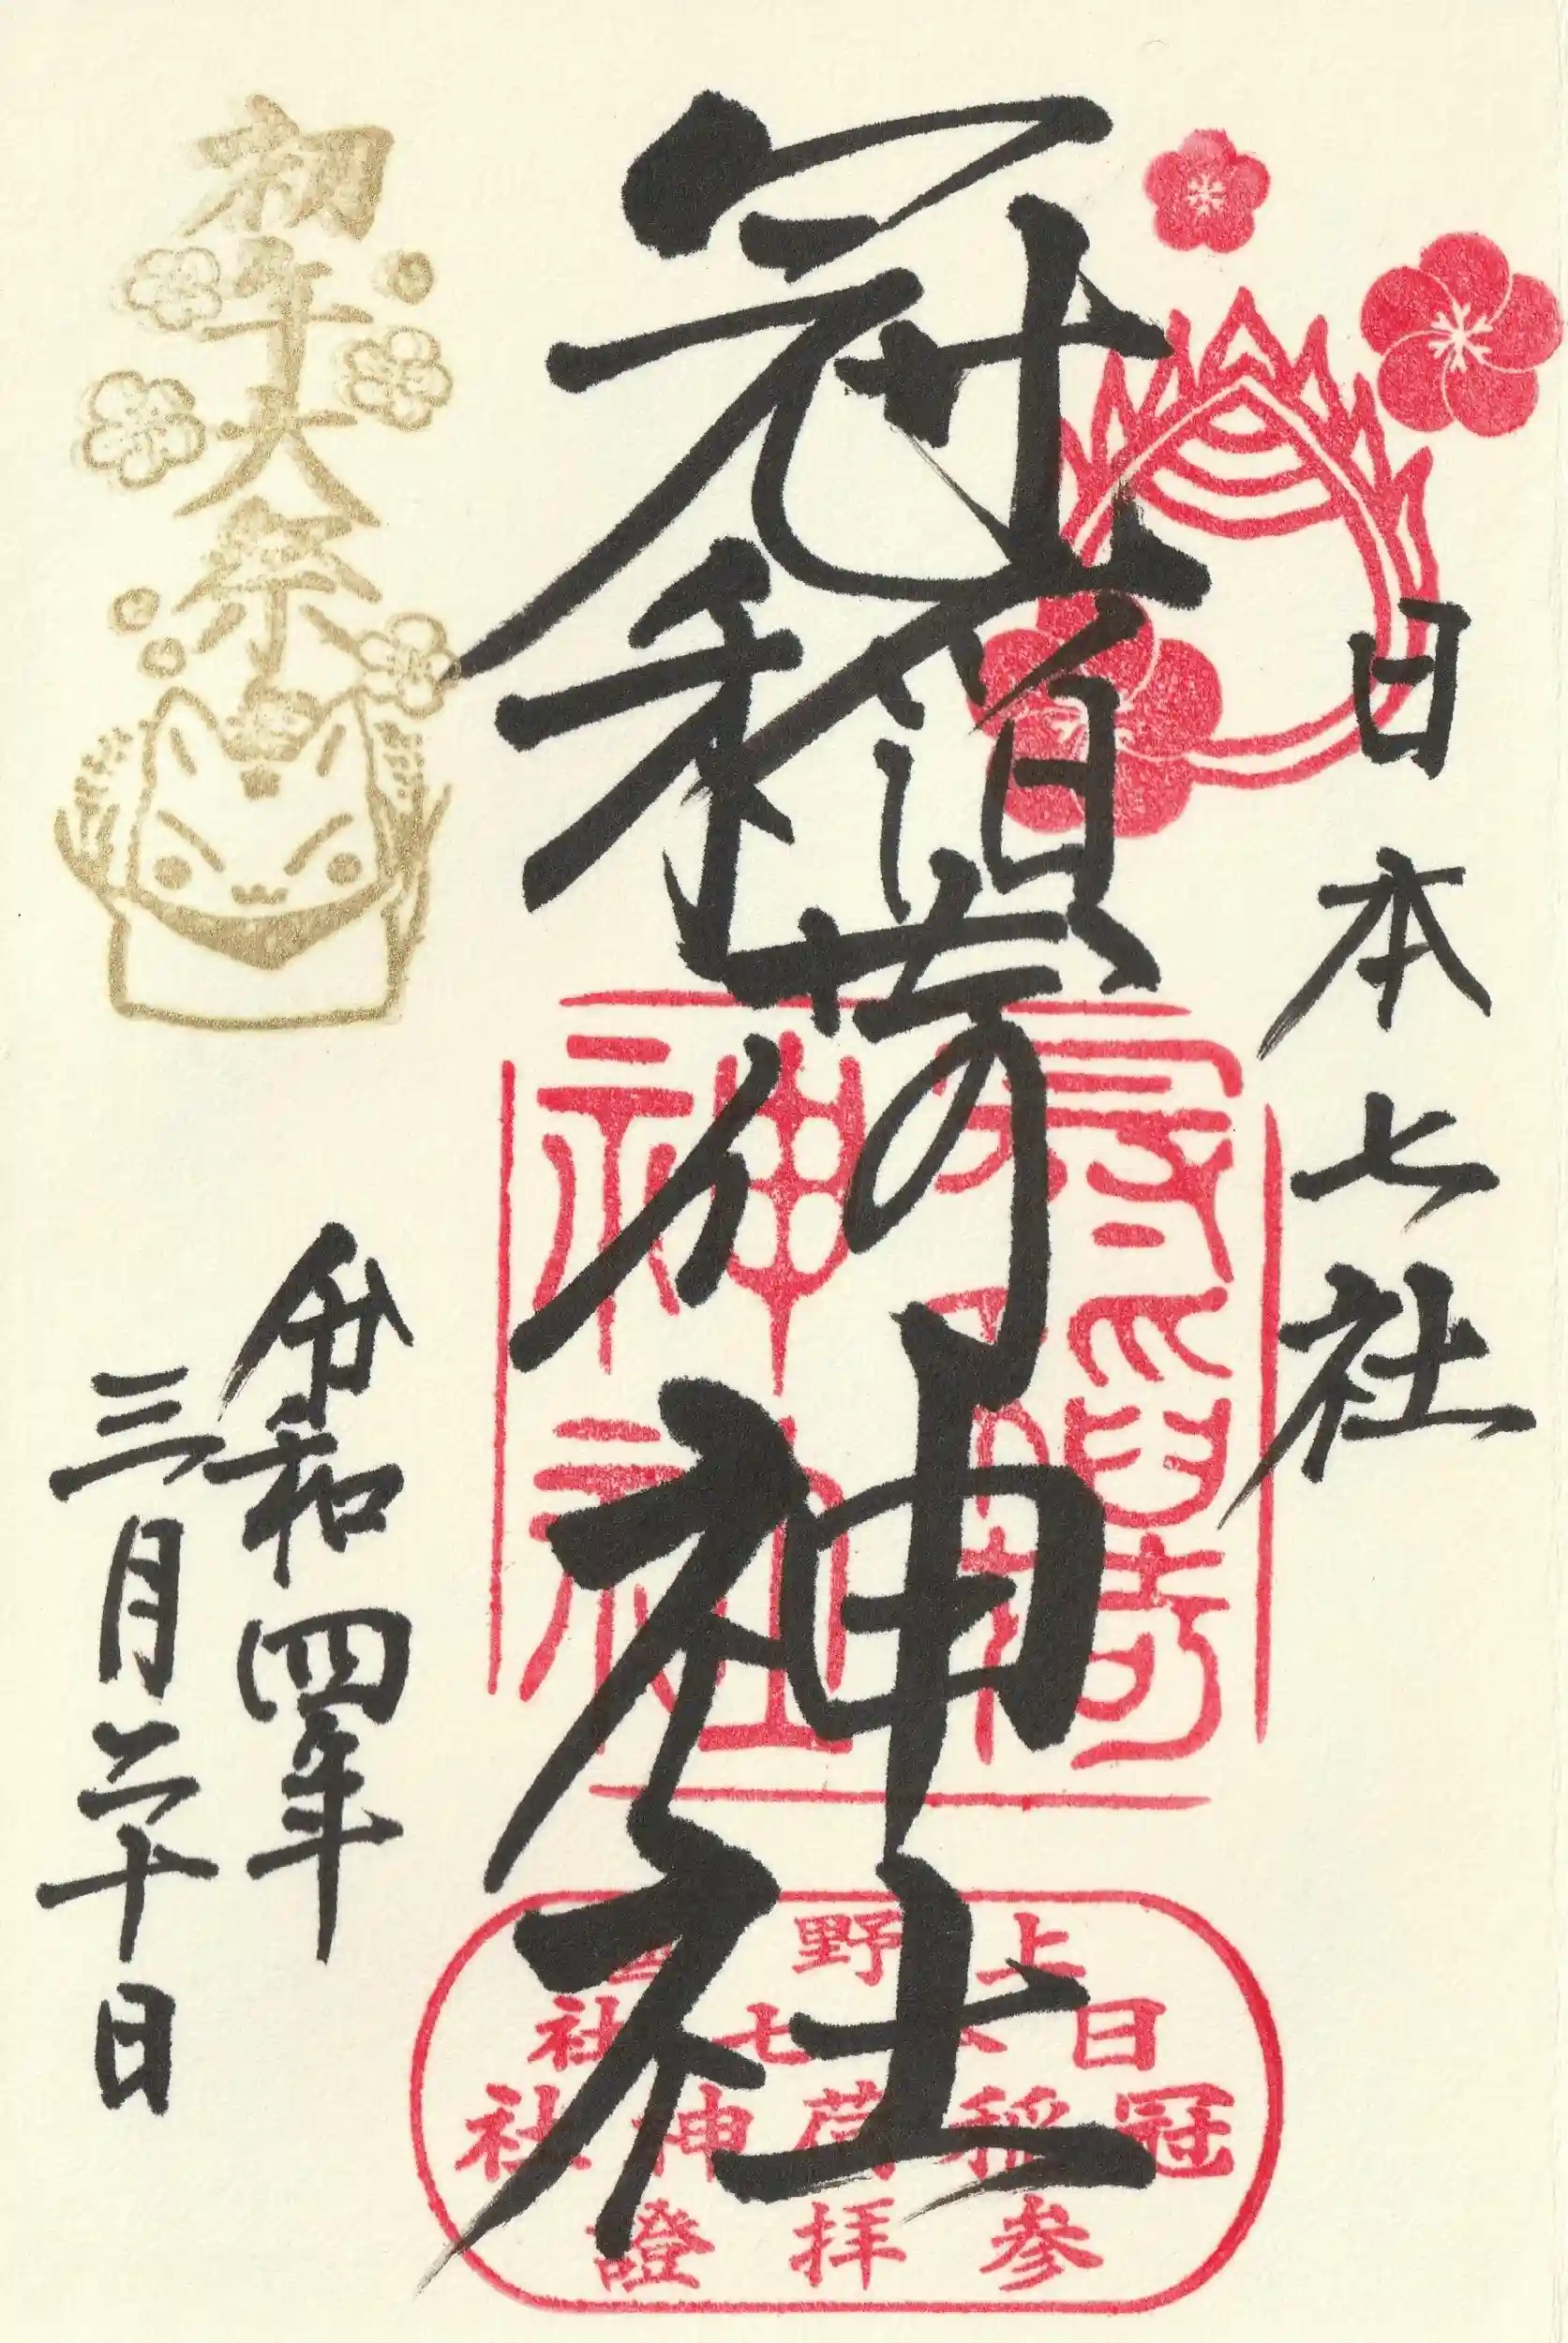 日本七社
冠稲荷神社
上野國
日本七社
冠稲荷神社
参拝證
初午大祭
令和四年
三月二十日